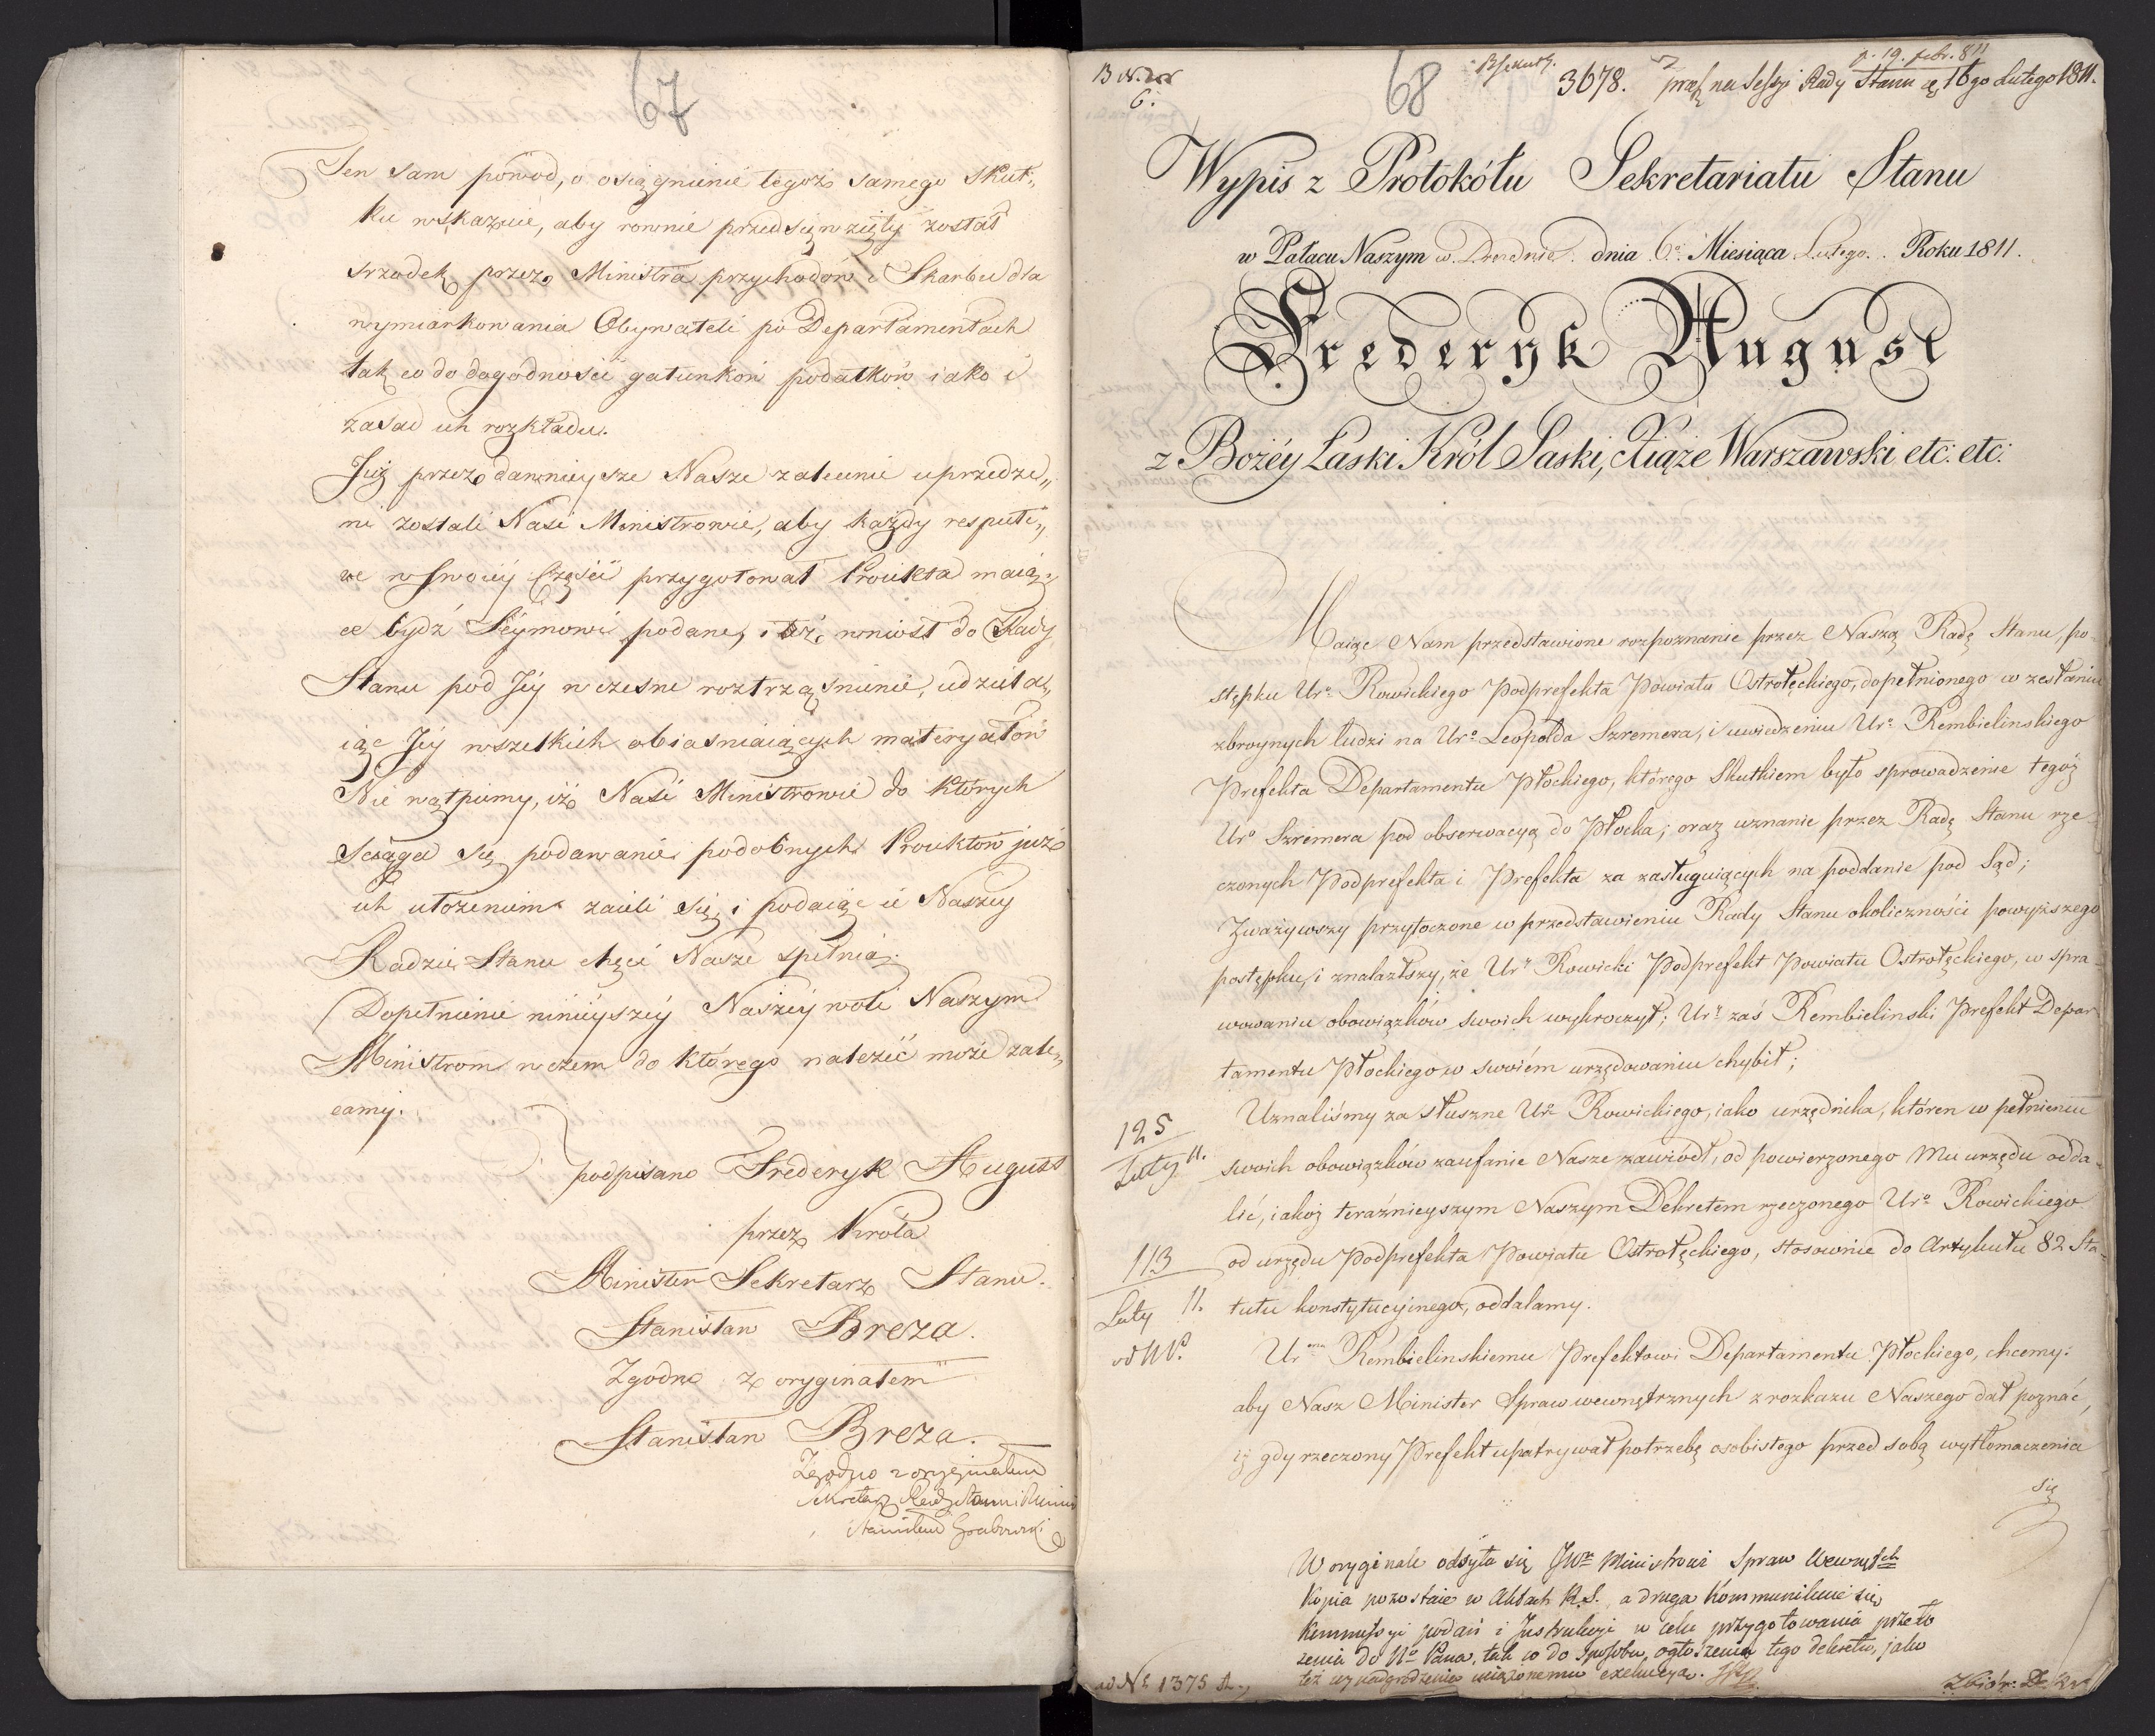 67
Ten sam powod, o osiągnienie tegoż samego skut„
ku wskazuie, aby rownie przedsięwzięty został
srzodek przez Ministra przychodow i Skarbu dla
wymiarkowania Obywateli po Departamentach
tak co do dogodności gatunkow podatkow iako i
zasad ich rozkładu.
Już przez dawnieysze Nasze zalecenie uprzedze„
ni zostali Nasi Ministrowie, aby każdy respecti„
ve w swoiey Części przygotował Proiekta maią„
ce bydź Seymowi podane, i też wniosł do Rady
Stanu pod Jey wczesne roztrząśnienie, udziela„
iąc Jey wszelkich obiasniaiących materyałow
Nie wątpiemy, iż Nasi Ministrowie do których
sciąga się podawanie podobnych Proiektow już
ich ułożeniem zaieli się, i podaiąc ie Naszey
Radzie Stanu chęci Nasze spełnią.
Dopełnienie ninieyszey Naszey woli Naszym
Ministrom w czem do którego należić może zale„
camy.
podpisano Frederyk August
przez Króla
Minister Sekretarz Stanu.
Stanisław Breza.
Zgodno z oryginałem
Stanisław Breza.
Zgodno z oryginałem
Sekretarz Rady Stanu i Minis
Stanisław Grabowski
6.
68
3678. na Sessyi Rady Stanu 16go Lutego 1811.
d. 19. febr. 811
Wypis z Protokółu Sekretariatu Stanu
w Pałacu Naszym w Dreźdnie dnia 6o Miesiąca Lutego. Roku 1811.
Frederyk August
z Bożéy Łaski Król Saski, Xiąże Warszawski etc: etc:
Maiąc Nam przedstawione rozpoznanie przez Naszą Radę Stanu, po-
stępku Uro Rowickiego Podprefekta Powiatu Ostrołęckiego, dopełnionego w zesłaniu
zbroynych ludzi na Uro Leopolda Szremera, i uwiedzeniu Uro Rembielinskiego
Prefekta Departamentu Płockiego, którego skutkiem było sprowadzenie tegoż
Uro Szremera pod obserwacyą do Płocka; oraz uznanie przez Radę Stanu rze-
czonych Podprefekta i Prefekta za zasługuiących na poddanie pod Sąd;
Zważywszy przytoczone w przedstawieniu Rady Stanu okoliczności powyższego
postępku, i znalazłszy, że Ur Rowicki Podprefekt Powiatu Ostrołęckiego, w spra-
wowaniu obowiązków swoich wykroczył; Ur zaś Rembielinski Prefekt Depar-
tamentu Płockiego w swoiém urzędowaniu chybił;
Uznaliśmy za słuszne Uro Rowickiego, iako urzędnika, któren w pełnieniu
swoich obowiązków zaufanie Nasze zawiódł, od powierzonego Mu urzędu odda-
lić, iakoż teraźnieyszym Naszym Dekretem rzeczonego Uro Rowickiego
od urzędu Podprefekta Powiatu Ostrołęckiego, stosownie do Artykułu 82 Sta-
tutu konstytucyinego, oddalamy.
Urmu Rembielinskiemu Prefektowi Departamentu Płockiego, chcemy:
aby Nasz Minister Spraw wewnętrznych z rozkazu Naszego dał poznać,
iż gdy rzeczony Prefekt upatrywał potrzebę osobistego przed sobą wytłomaczenia
się
125
Luty 11.
113
Luty 11.
W oryginale odsyła się JWu Ministrowi Spraw Wewnętch
Kopia pozostaie w Aktach R.S. a druga Kommunikuie się
Kommissyi podań i Instrukcyi w celu przygotowania przeło
żenia do No Pana, tak co do sposobu ogłoszenia tego dekretu, jako
też wynadgrodzenia uciążonemu exekucyą.
ad No 1375 A.